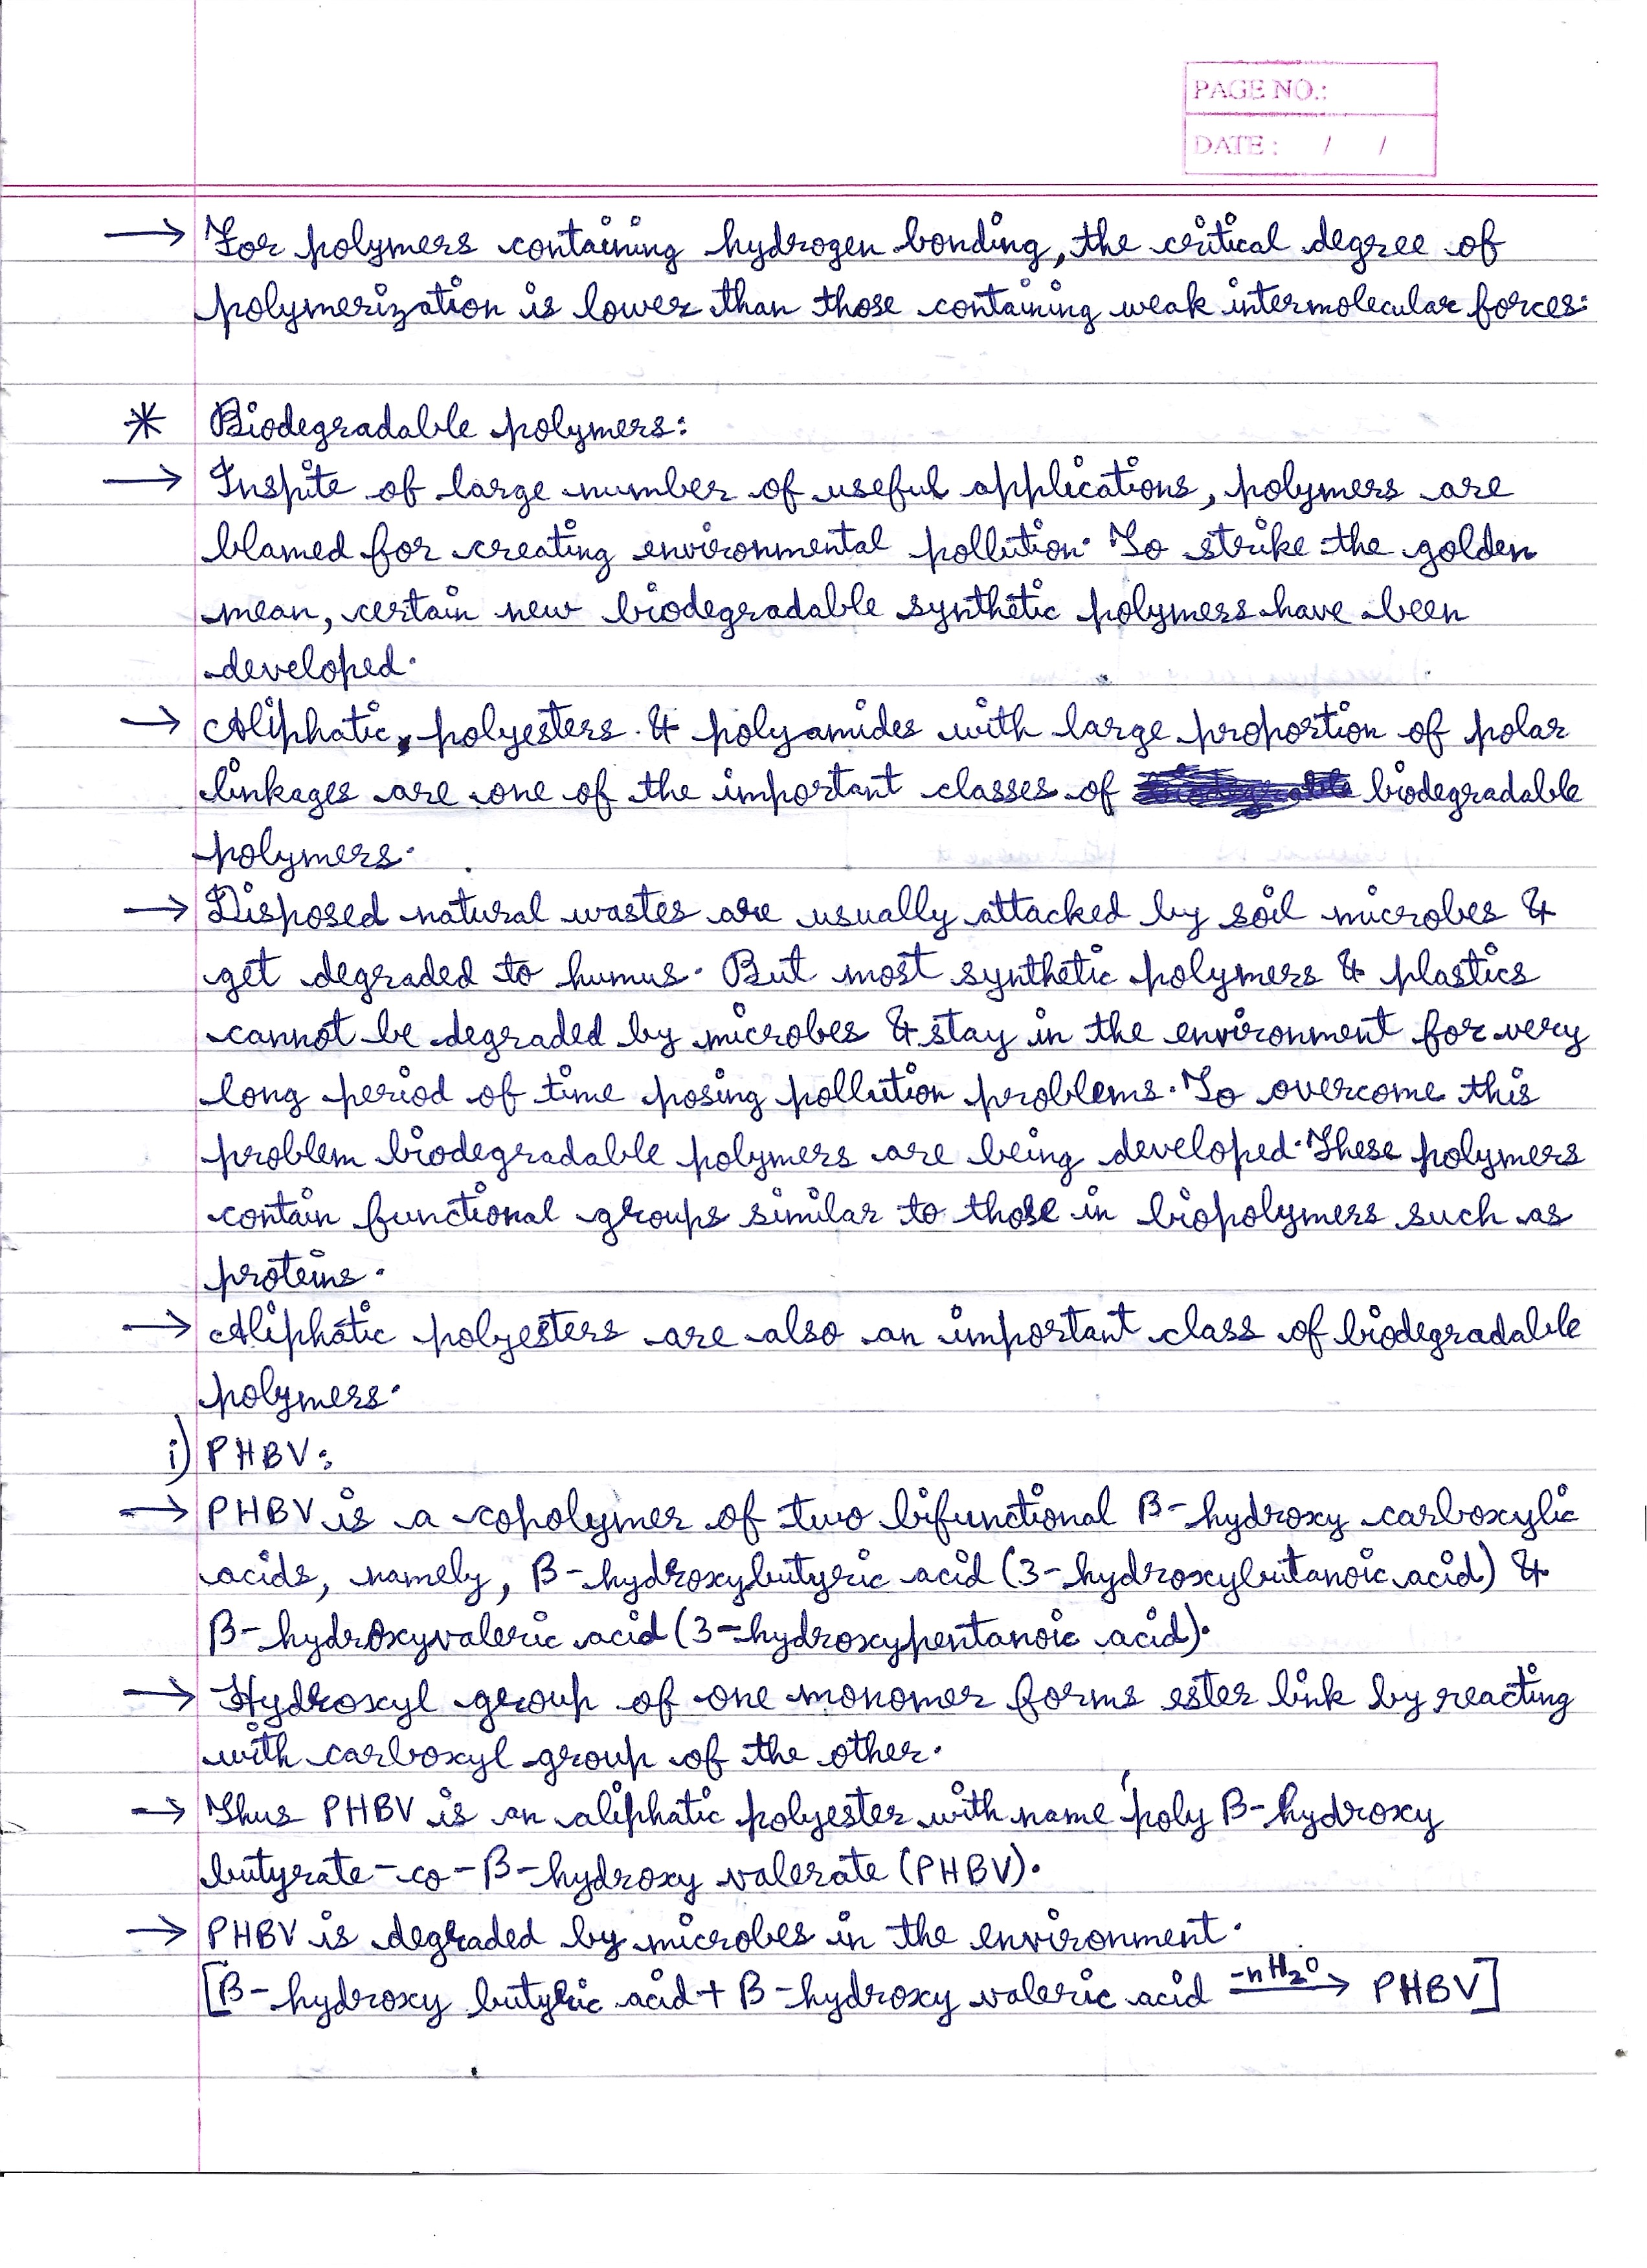 PAGE NO.:
DATE : / /
→ For polymers containing hydrogen bonding, the critical degree of
polymerization is lower than those containing weak intermolecular forces.
* Biodegradable polymers:
→ Inspite of large number of useful applications, polymers are
blamed for creating environmental pollution. To strike the golden
mean, certain new biodegradable synthetic polymers have been
developed.
→ Aliphatic, polyesters & polyamides with large proportion of polar
linkages are one of the important classes of biodegradable
polymers.
→ Disposed natural wastes are usually attacked by soil microbes &
get degraded to humus. But most synthetic polymers & plastics
cannot be degraded by microbes & stay in the environment for very
long period of time posing pollution problems. To overcome this
problem biodegradable polymers are being developed. These polymers
contain functional groups similar to those in biopolymers such as
proteins.
→ Aliphatic polyesters are also an important class of biodegradable
polymers.
i) PHBV:
→ PHBV is a copolymer of two bifunctional β-hydroxy carboxylic
acids, namely, β-hydroxybutyric acid (3-hydroxybutanoic acid) &
β-hydroxyvaleric acid (3-hydroxypentanoic acid).
→ Hydroxyl group of one monomer forms ester link by reacting
with carboxyl group of the other.
→ Thus PHBV is an aliphatic polyester with name 'poly β-hydroxy
butyrate-co-β-hydroxy valerate (PHBV).
→ PHBV is degraded by microbes in the environment.
[β-hydroxy butyric acid + β-hydroxy valeric acid -nH₂O→ PHBV]